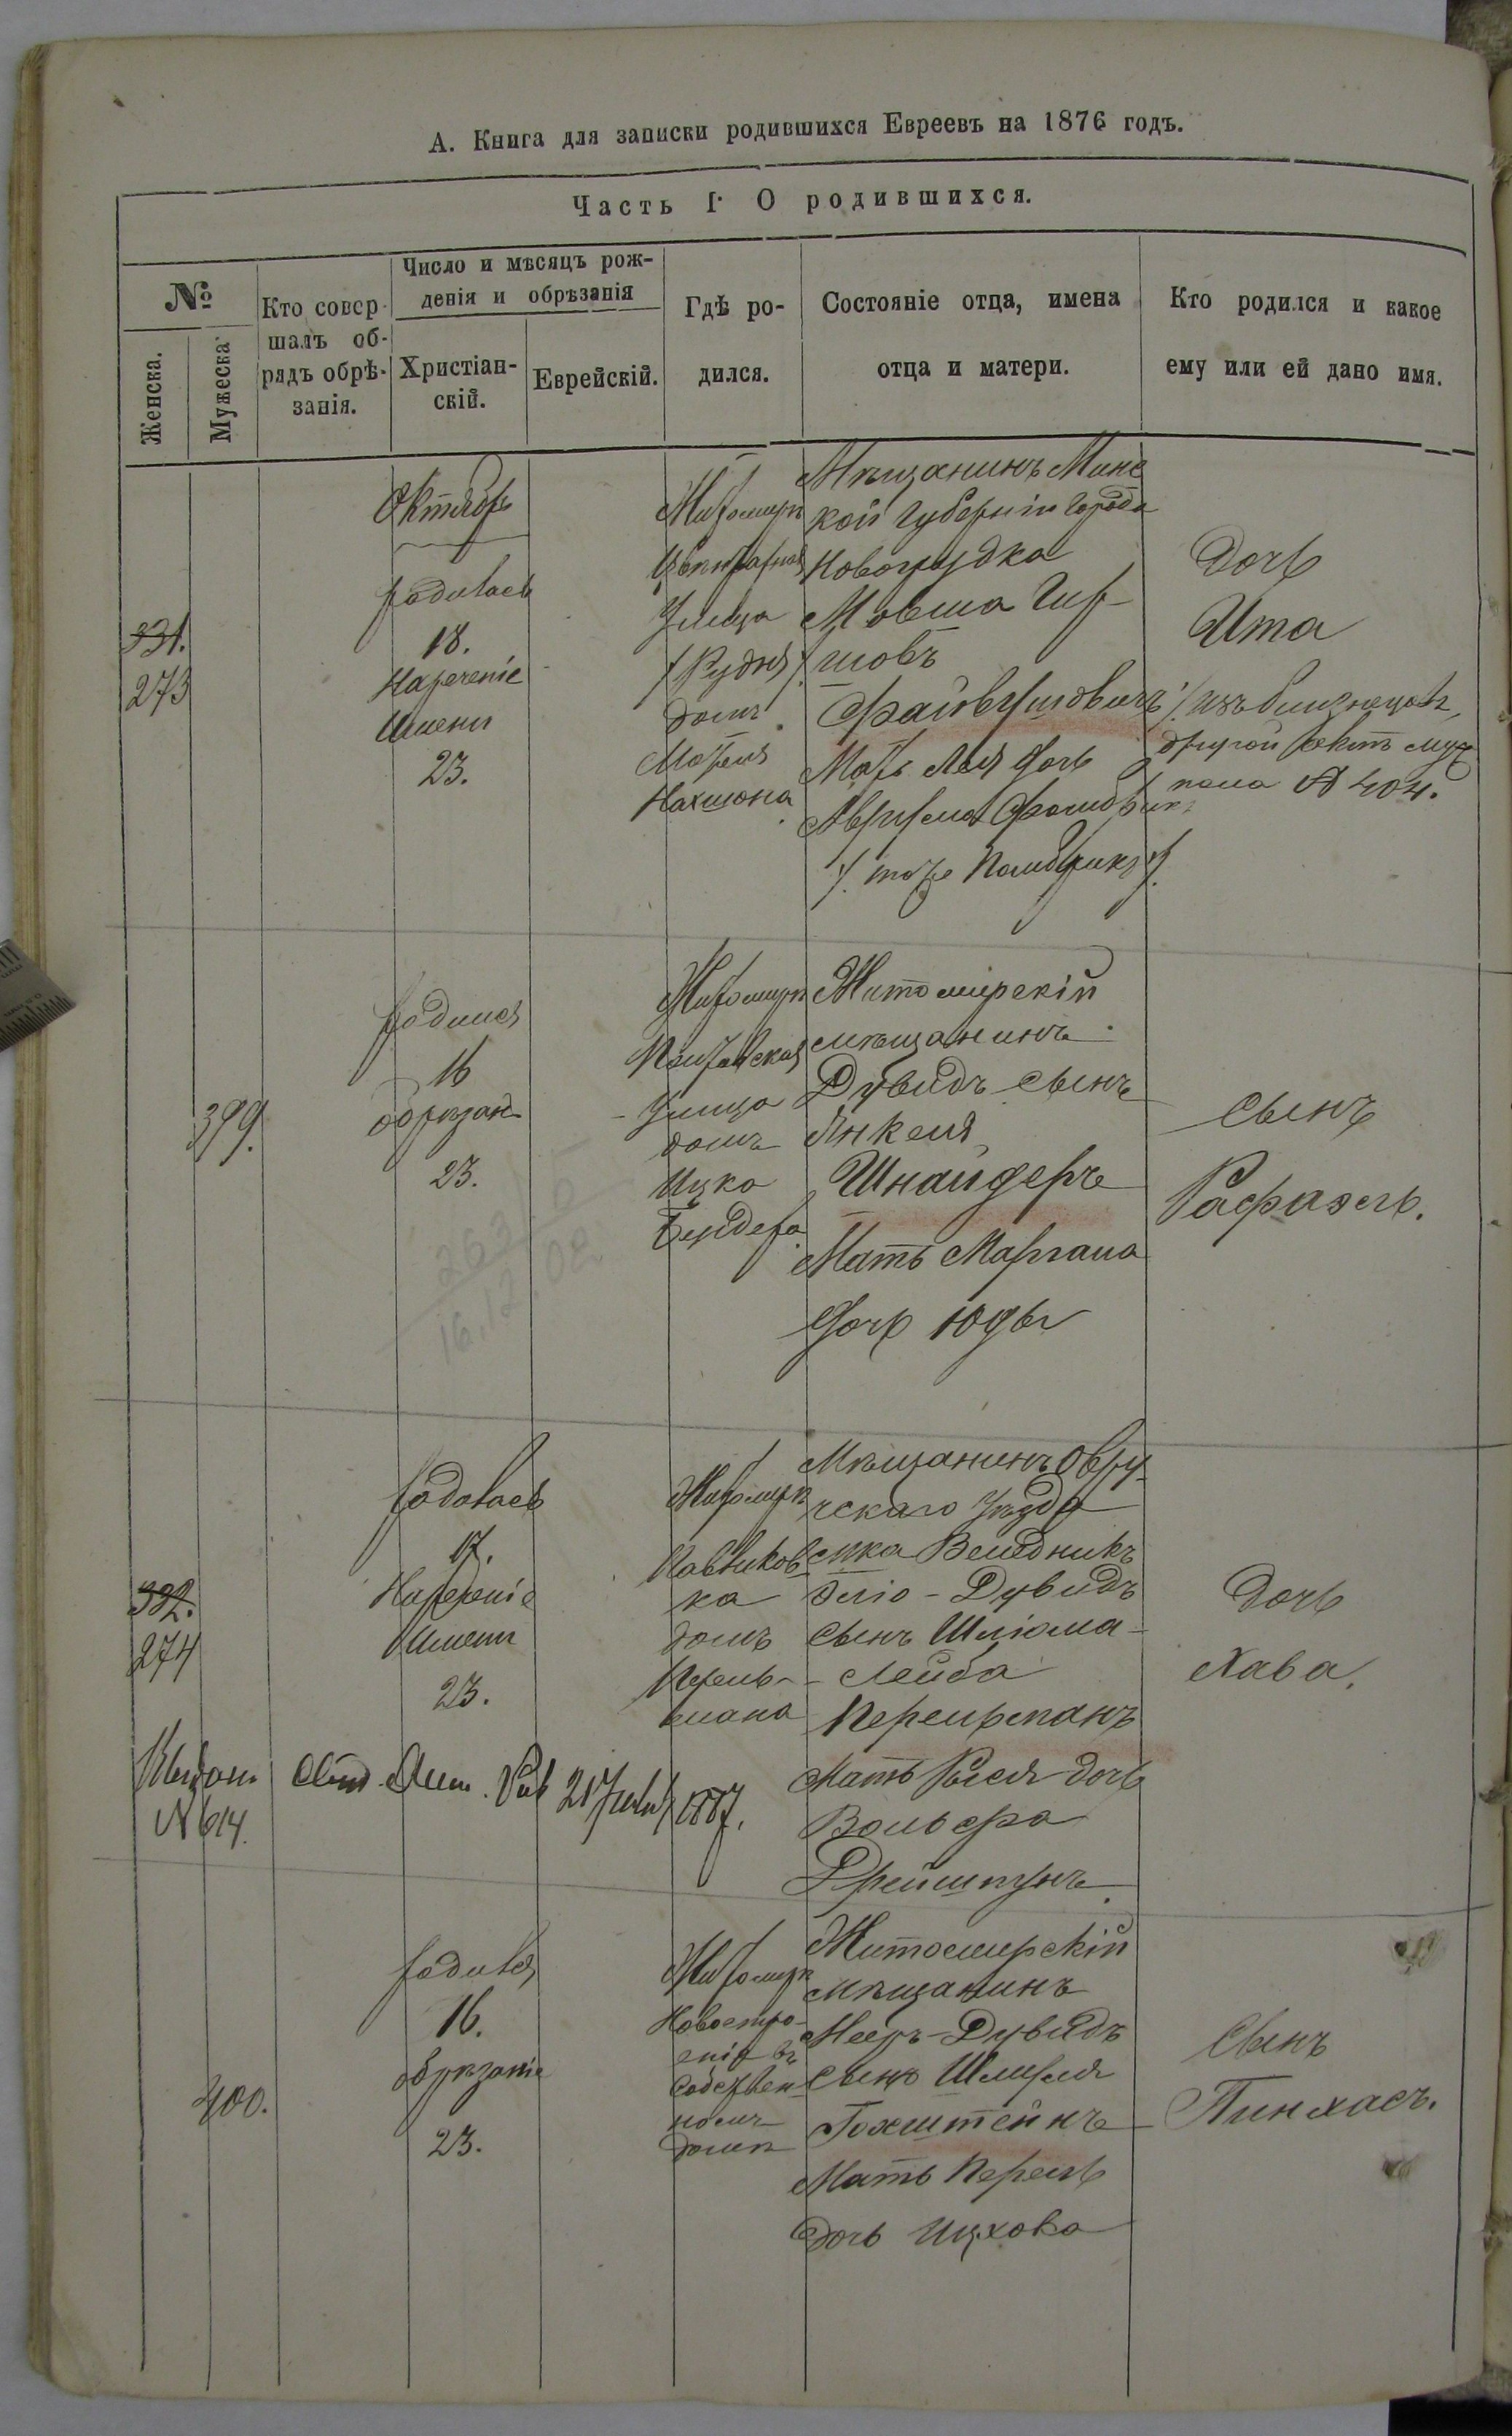 А. Книга для записки родившихся Евреевъ на 1876 годъ.
Часть I. О родившихся.
№
Женска.
Мужеска
Кто совер-
шалъ об-
рядъ обрѣ-
занія.
Число и мѣсяцъ рож-
денія и обрѣзанія
Христіан-
скій.
Еврейскій.
Гдѣ ро-
дился.
Состояніе отца, имена
отца и матери.
Кто родился и какое
ему или ей дано имя.
331.
273
Октябрь
родилась
18.
Нареченіе
Имени
23.
Житомиръ
Улица
/Рудня/
домъ
Нахмона
Мѣщанинъ Минс
кой губерніи города
Новогрудка
Мовша Гир-
шовъ
Файвушовичъ
Мать Лея дочь
Дочь
Ита
/изъ близнецовъ,
другой
№ 404.
399.
родился
16
обрѣзан
23.
Житомиръ
Улица
домъ
Ицко
Бендера
Житомирскій
мѣщанинъ
Дувидъ сынъ
Янкеля
Шнайдеръ
Мать
дочь Юды
Сынъ
Рафаэль.
263
16.12.02
332.
274
родилась
17.
Нареченіе
Имени
23.
Житомиръ
Павликов
ка
домъ
Перель-
мана
Мѣщанинъ Овру-
чскаго уѣзда
мка Веледникъ
Эліо-Дувидъ
сынъ Шліома-
Лейба
Перельманъ
Мать Рыся дочь
Вольфа
Дочь
Хава.
№ 614.
21
1887.
400.
родился
16.
обрѣзаніе
23.
Житомиръ
Новостро-
енія въ
собствен
номъ
домѣ
Житомирскій
мѣщанинъ
Мееръ-Дувидъ
сынъ Шмуля
Гохштейнъ
Мать Перель
дочь Ицхока
Сынъ
Пинхасъ.